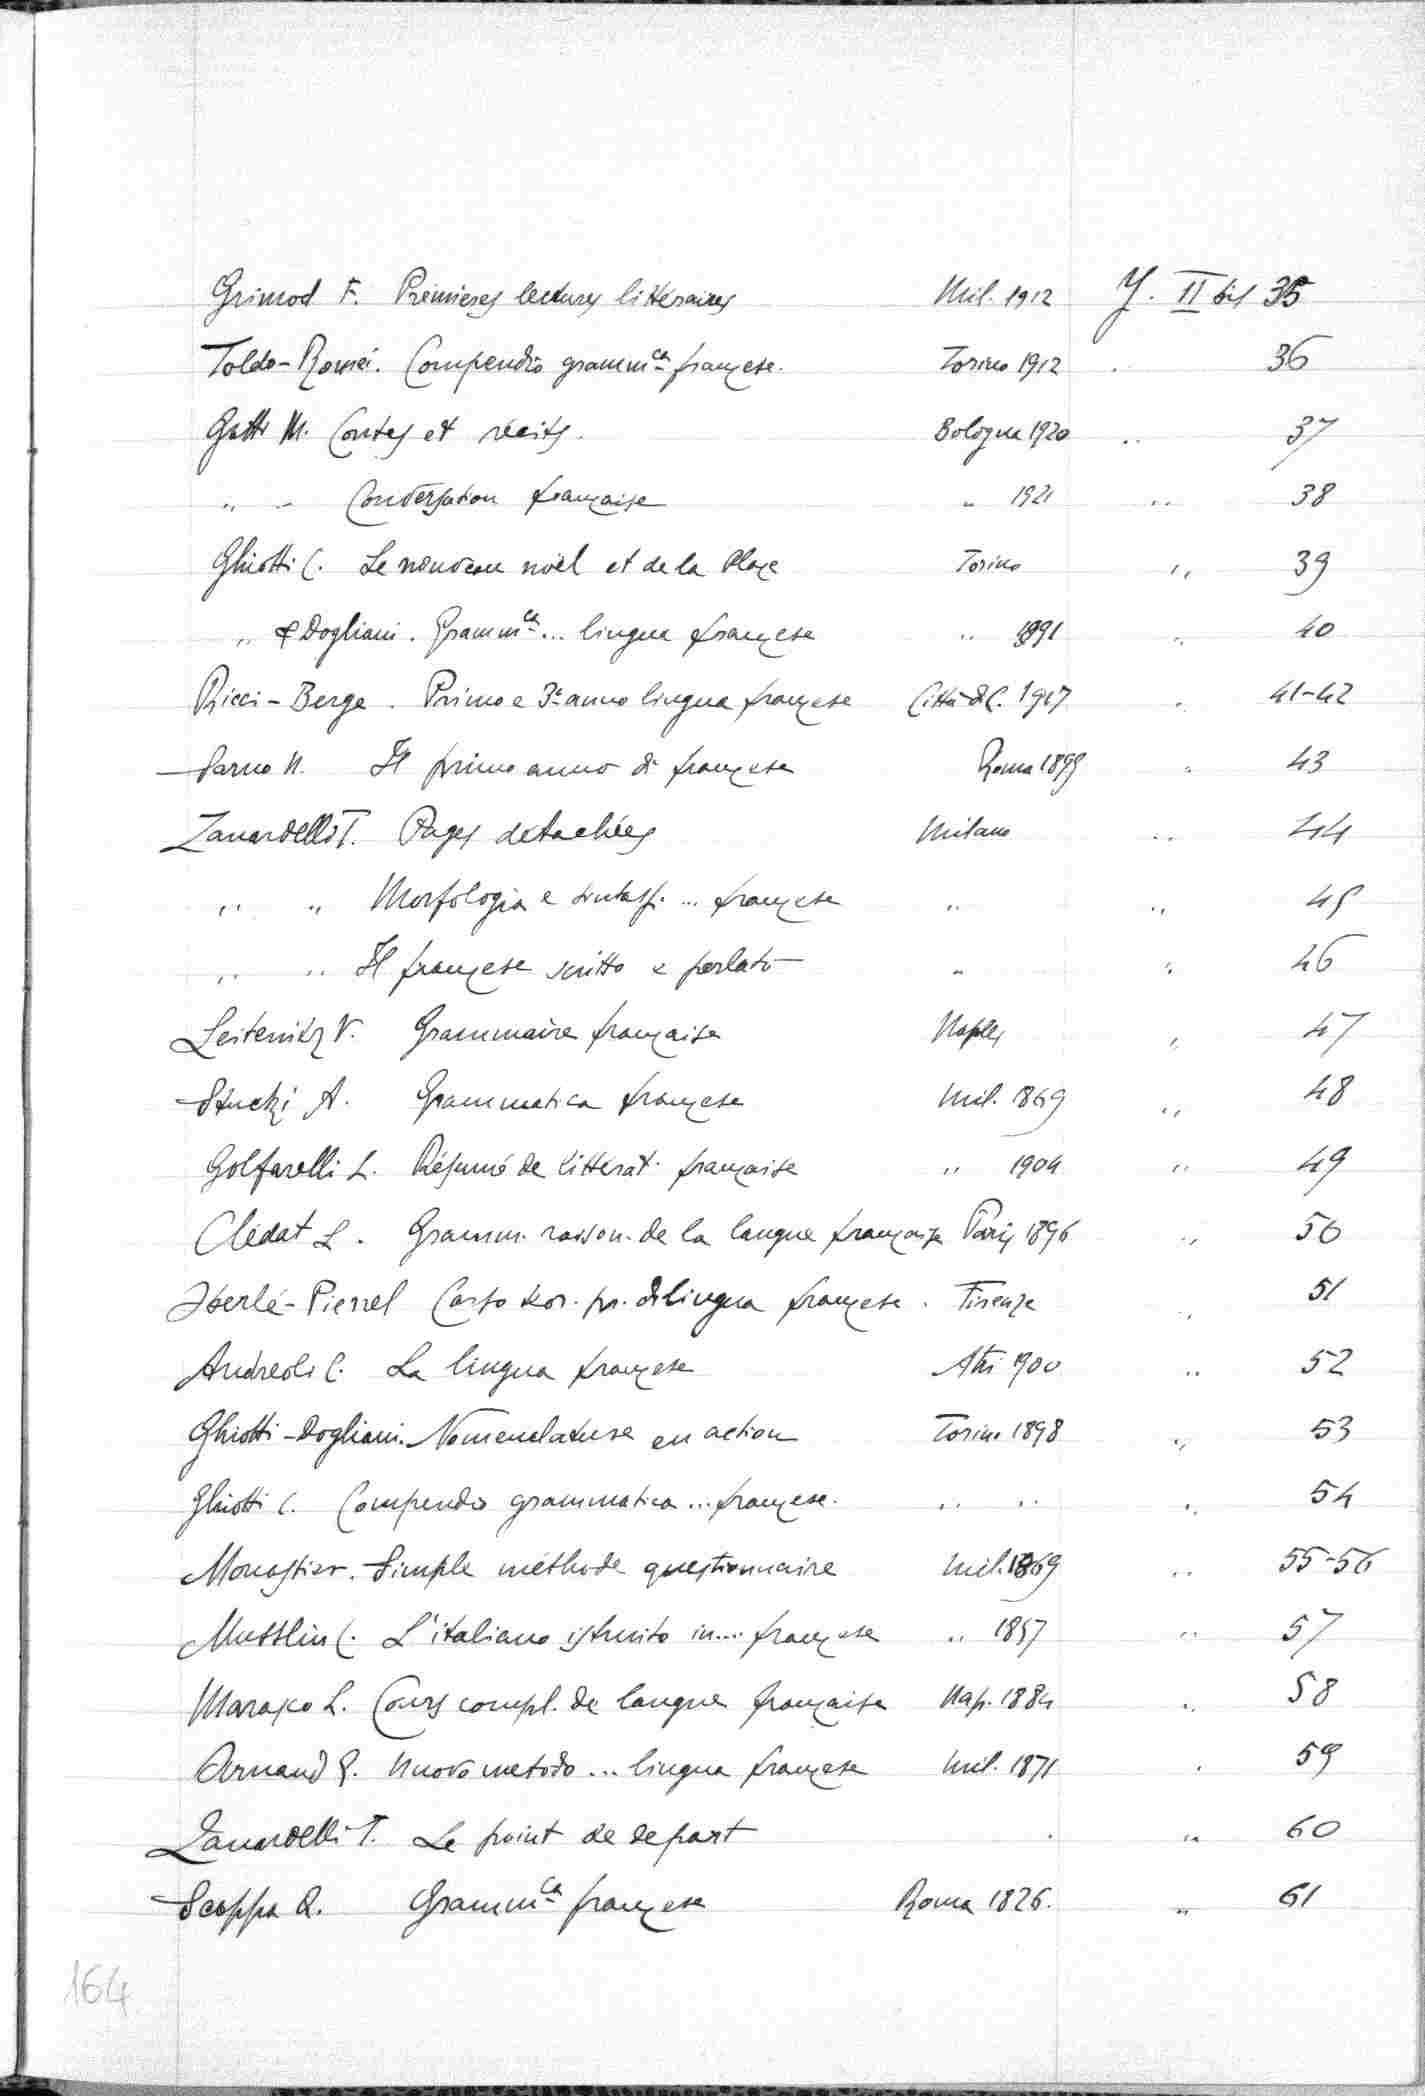 Grimod F. Premieres lectures littéraires Mil. 1912 Y. II bis 35
Toldo-Romei. Compendio gramm.ca francese. Torino 1912 36
Gatti M. Contes et récits. Bologna 1920 „ 37
„ „ Conversation française „ 1921 „ 38
Ghiotti C. Le nouveau noël et de la Place Torino „ 39
„ & Dogliani. Gramm.ca... lingua francese „ 1891 „ 40
Ricci-Berge. Primo e 3° anno lingua francese Città di C. 1917 „ 41-42
Sarno N. Il primo anno di francese Roma 1899 „ 43
Zanardelli T. Pages detachées Milano „ 44
„ „ Morfologia e sintass. ... francese „ „ 45
„ „ Il francese scritto e parlato „ „ 46
Leitenitz V. Grammaire française Naples „ 47
Stucki A. Grammatica francese Mil. 1869 „ 48
Golfarelli L. Résumé de littérat. française „ 1904 „ 49
Clédat L. Gramm. raison. de la langue française Paris 1896 „ 50
Iberlé-Pierrel Corso pr. di lingua francese. Firenze „ 51
Andreoli C. La lingua francese Atri 1900 „ 52
Ghiotti-Dogliani. Nomenclature en action Torino 1898 „ 53
Ghiotti C. Compendio grammatica... francese. „ „ „ 54
Monastier. Simple méthode questionnaire Mil. 1869 „ 55-56
Musslin C. L'italiano istruito in.... francese „ 1857 „ 57
Marasco L. Cours compl. de langue française Nap. 1884 „ 58
Arnaud G. Nuovo metodo... lingua francese Mil. 1871 „ 59
Zanardelli T. Le point de depart „ „ 60
Scoppa A. Gramm.ca francese Roma 1826. „ 61
164